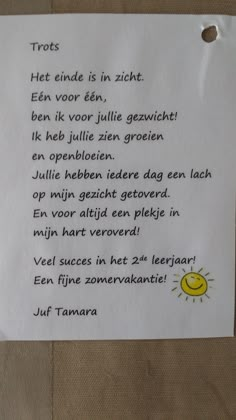 Trots
Het einde is in zicht.
Eén voor één,
ben ik voor jullie gezwicht!
Ik heb jullie zien groeien
en openbloeien.
Jullie hebben iedere dag een lach
op mijn gezicht getoverd.
En voor altijd een plekje in
mijn hart veroverd!
Veel succes in het 2de leerjaar!
Een fijne zomervakantie!
Juf Tamara